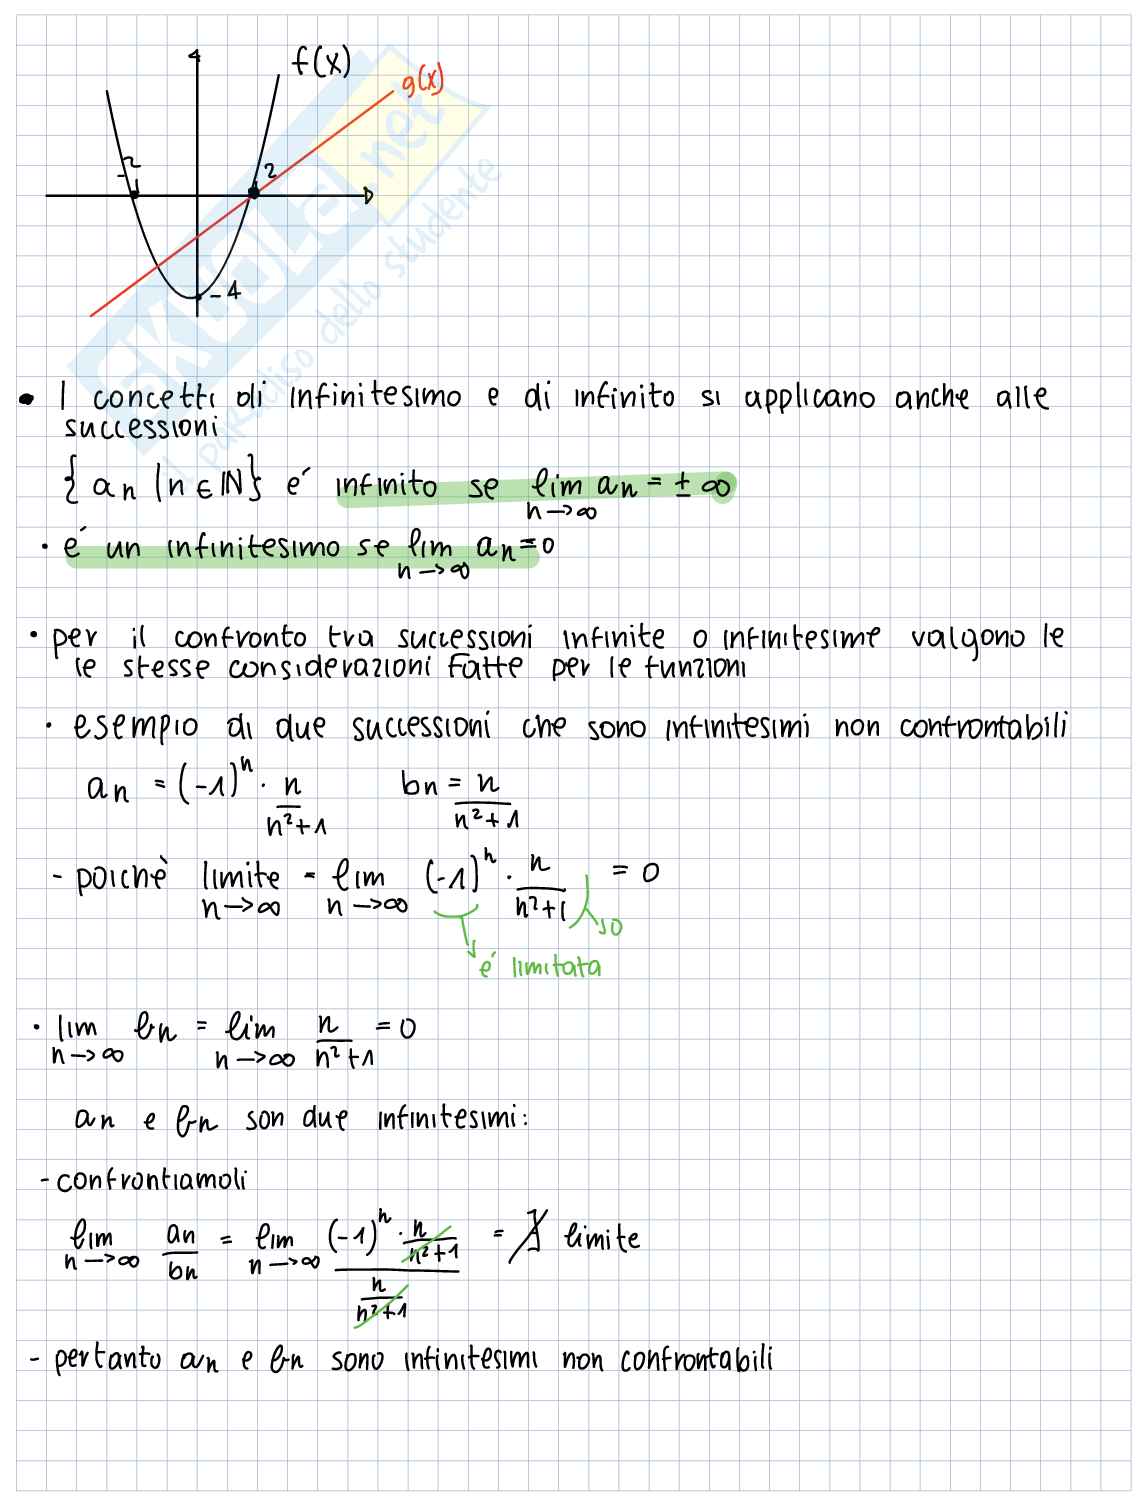 f(x)
g(x)
-2
2
-4
SKUOLA.net
il paradiso dello studente
• I concetti di infinitesimo e di infinito si applicano anche alle
successioni
{an | n ∈ ℕ} é infinito se lim an = ± ∞
n → ∞
· é un infinitesimo se lim an = 0
n → ∞
· per il confronto tra successioni infinite o infinitesime valgono le
le stesse considerazioni fatte per le funzioni
· esempio di due successioni che sono infinitesimi non confrontabili
an = (-1)^n · n/(n²+1) bn = n/(n²+1)
- poichè limite = lim (-1)^n · n/(n²+1) = 0
n → ∞ n → ∞
↘ 0
é limitata
· lim bn = lim n/(n²+1) = 0
n → ∞ n → ∞
an e bn son due infinitesimi:
- confrontiamoli
lim an/bn = lim ((-1)^n · n/(n²+1))/(n/(n²+1)) = ∄ limite
n → ∞ n → ∞
- pertanto an e bn sono infinitesimi non confrontabili